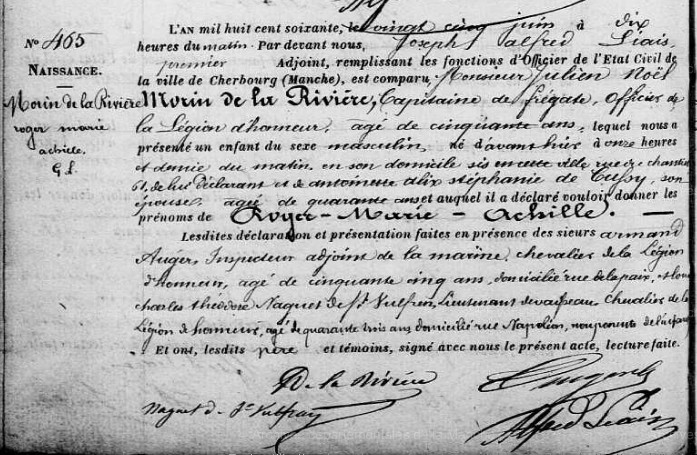 L'AN mil huit cent soixante, le vingt cinq juin à dix
heures du matin. Par devant nous, Joseph alfred Liais,
premier Adjoint, remplissant les fonctions d'Officier de l'Etat Civil de
la ville de Cherbourg (Manche), est comparu, Monsieur Julien Noël
Morin de la Rivière, Capitaine de frégate, officier de
la Légion d'honneur, agé de cinquante ans, lequel nous a
présenté un enfant du sexe masculin, né d'avant hier à onze heures
et demie du matin, en son domicile sis en cette ville rue de
61, de lui déclarant et de antoinette alix stéphanie de Cussy, son
épouse, agée de quarante ans et auquel il a déclaré vouloir donner les
prénoms de Roger-Marie-Achille. —
Lesdites déclaration et présentation faites en présence des sieurs armand
Auger, Inspecteur adjoint de la marine, chevalier de la Légion
d'honneur, agé de cinquante cinq ans, domicilié rue de la paix, et
charles théodore Naquet de St Vulfran, Lieutenant de vaisseau Chevalier de la
Légion de honneur, agé de quarante trois ans domicilié rue Napoléon, non parents de l'enfant
Et ont, lesdits père et témoins, signé avec nous le présent acte, lecture faite.
No 465
NAISSANCE.
Morin de la Rivière
roger marie
achille.
D. de la Rivière
Naquet d. St Vulfran
Alfred Liais